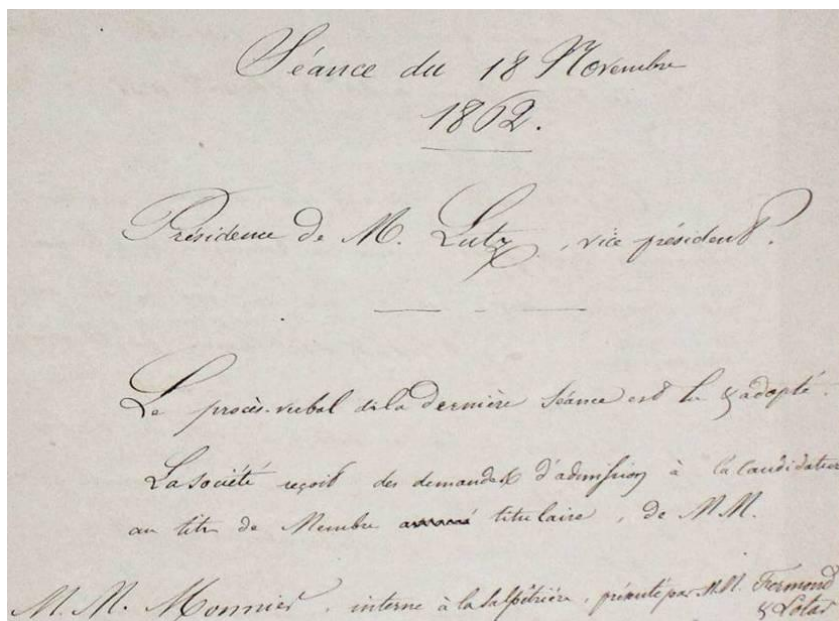 Séance du 18 Novembre
1862.
Présidence de M. Lutz, vice président.
Le procès-verbal de la dernière séance est lu & adopté.
La société reçoit des demandes d'admission à la candidature
au titre de Membre titulaire, de MM.
M. M. Monnier, interne à la Salpêtrière, présenté par M.M. Fermond
& Lotar